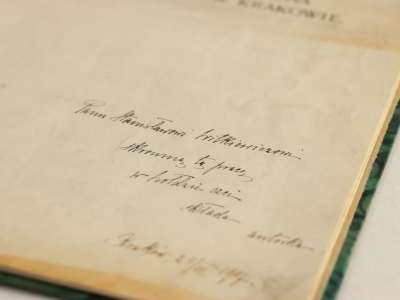 W KRAKOWIE
Panu Stanisławowi Witkiewiczowi
skromną tę pracę
w hołdzie czci
składa
autorka
Kraków